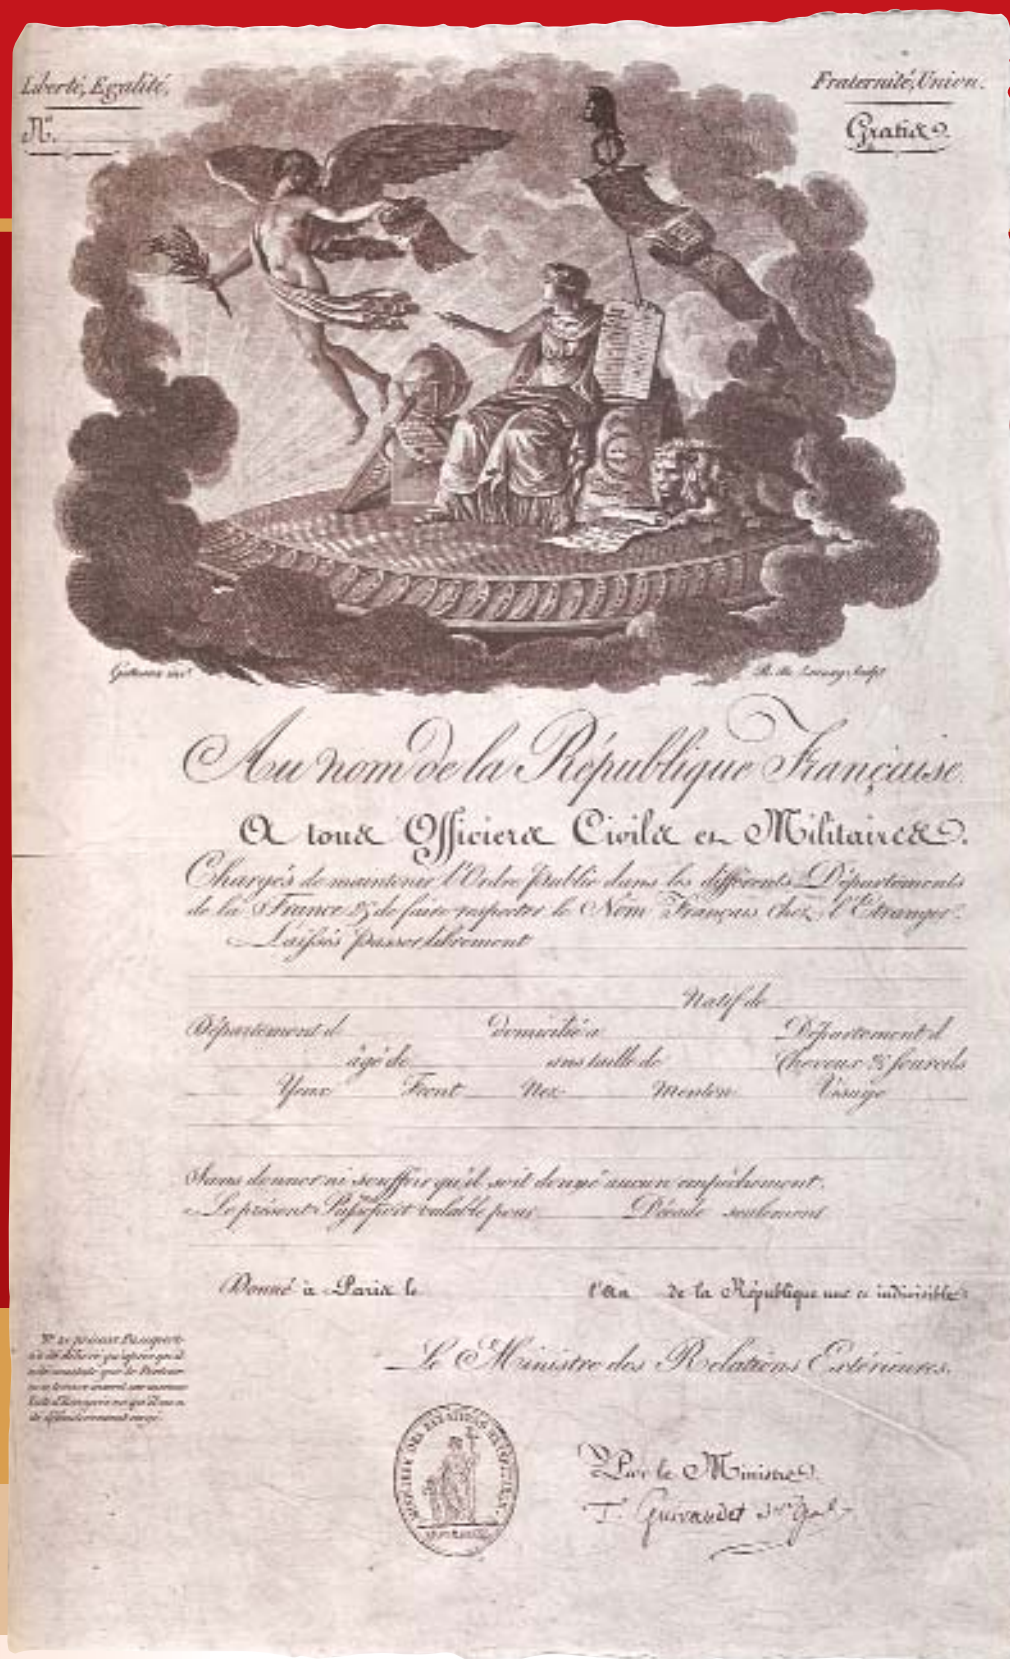 Liberté, Egalité.
Fraternité, Union.
N.°
Gratis.
R. De Launay Sculpt
Au nom de la République Française.
A tous Officiers Civils et Militaires.
Chargés de maintenir l'Ordre public dans les différents Départements
de la France & de faire respecter le Nom Français chez l'Etranger.
Laissés passer librement
Natif de
Département d domicilié à Département d
âgé de ans taille de Cheveux & sourcils
Yeux Front Nez Menton Visage
Sans donner ni souffrir qu'il soit donné aucun empêchement.
Le présent Passeport valable pour Décade seulement
Donné à Paris le l'an de la République une et indivisible.
Le Ministre des Relations Extérieures.
Par le Ministre.
T. Guiraudet